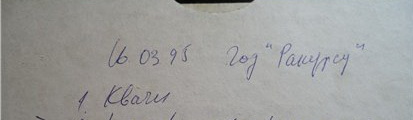 16 03 95 Год "Ракурсу"
1 Квачи